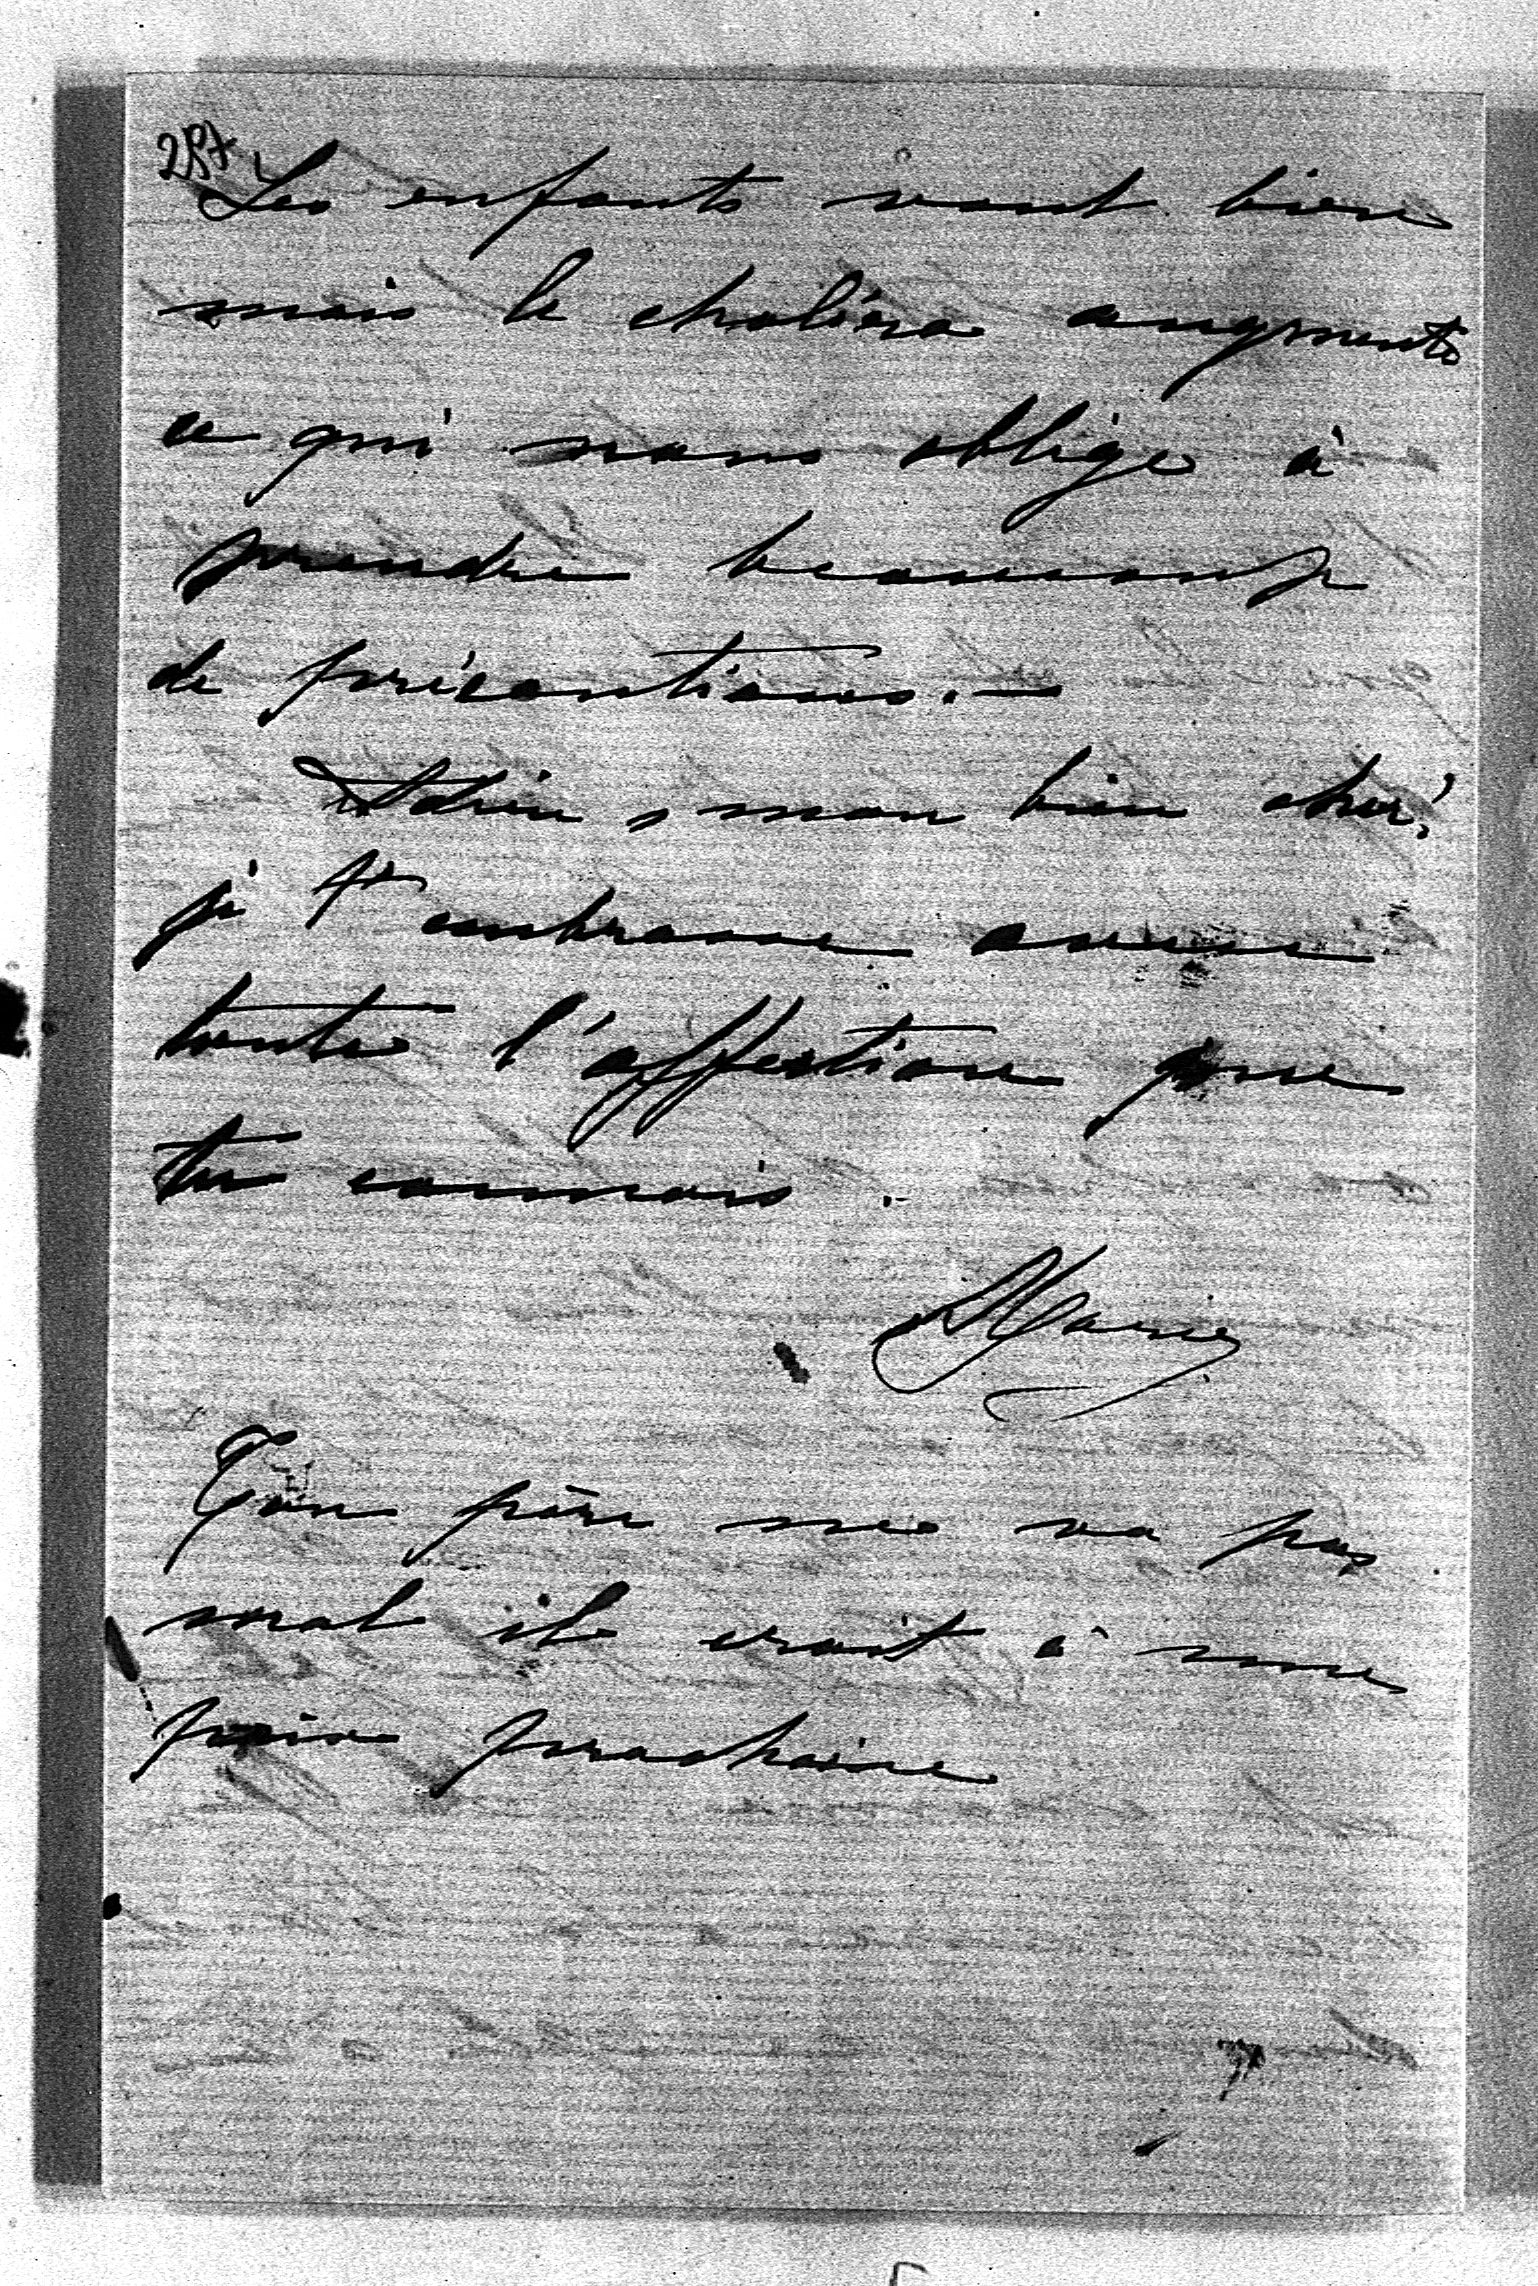 257
Les enfants vont bien
mais le choléra augmente
ce qui nous oblige à
prendre beaucoup
de précautions. —
Adieu, mon bien cher,
je t'embrasse avec
toute l'affection que
tu connais.
Marie
Ton père ne va pas
mal il croit à une
paix prochaine